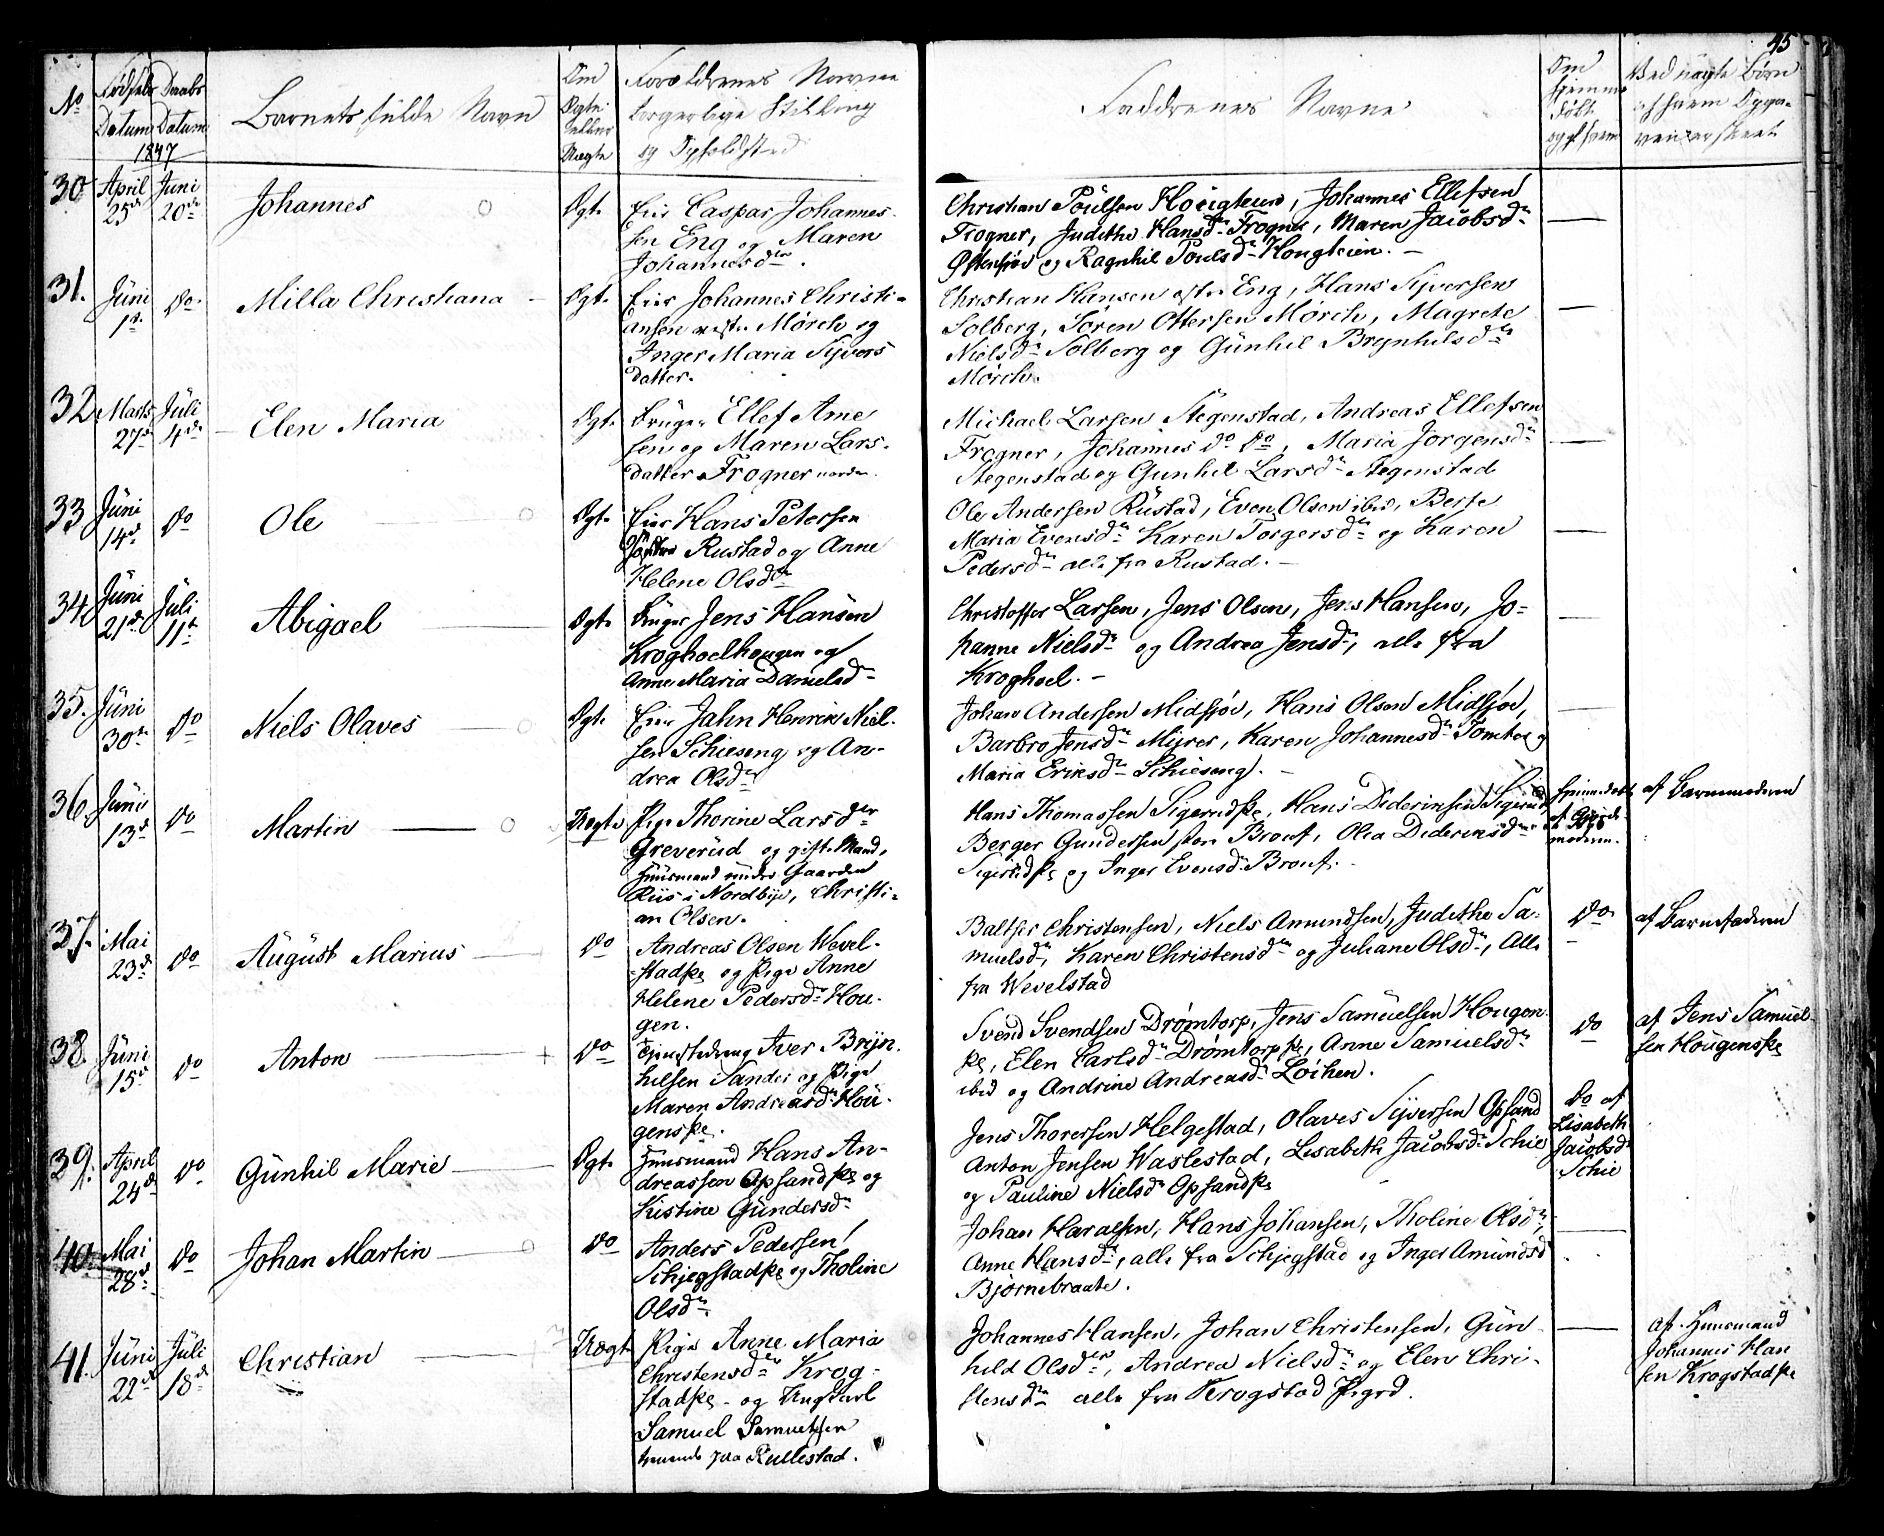 45
No Fødsels Daabs Barnets fulde Navn Om Forældrenes Navne Faddrenes Navne Om Ved uægte Børn
Datum Datum Ægte borgerlige Stilling hjemme af hvem Opga-
1847 eller og Opholdsted døbt ven er skeet
Uægte og af hvem
30 April 25de Juni 20de Johannes Ægte
Eier Caspar Johannes-
sen Eng og Maren
Johannesdtr.
Christian Poulsen Hougteien, Johannes Ellefsen
Frogner, Judithe Hansdr Frogner, Maren Jacobsdr
Østensjøe og Ragnhil Poulsdr Hougteien.
31. Juni 1ste Do Milla Christiana Ægte
Eier Johannes Christi-
ansen Mørch og
Inger Maria Syvers
datter.
Christian Hansen Eng, Hans Syversen
Solberg, Søren Ottersen Mørch, Magrete
Nielsdr Solberg og Gunhil Brynhilsdr
Mørch.
32 Marts 27de Juli 4de Elen Maria Ægte
Bruger Ellef Arne
sen og Maren Lars-
datter Frogner nordre.
Michael Larsen Stegenstad, Andreas Ellefsen
Frogner, Johannes do do, Maria Jorgensdr
Stegenstad og Gunhil Larsdr Stegenstad
33 Juni 14de Do Ole Ægte
Eier Hans Petersen
Rustad og Anne
Helene Olsdr
Ole Andersen Rustad, Even Olsen ibid, Berte
Maria Evensdr Karen Torgersdr og Karen
Pedersdr alle fra Rustad.
34 Juni 21de Juli 11te Abigael Ægte
Bruger Jens Hansen
Kroghoelhougen og
Anne Maria Danielsdr
Christoffer Larsen, Jens Olsen, Jens Hansen, Jo-
hanne Nielsdr og Andrea Jensdr, alle fra
Kroghoel.
35. Juni 30te Do Niels Olaves Ægte
Eier Jahn Henrik Niel-
sen Schieseng og An-
drea Olsdr
Johan Andersen Midsjøe, Hans Olsen Midsjøe,
Barbro Jensdr Myrer, Karen Johannesdr Tomter og
Maria Eriksdr Schieseng.
36. Juni 13de Do Martin Uægte
Pige Thorine Larsdtr
Greverud og gift Mand,
Huusmand under Gaarden
Riis i Nordbye, Christi-
an Olsen.
Hans Thomassen Sigerudpe, Hans Dideriksen Sigerud
Berger Gundersen Brout, Olea Dideriksdr
Sigerudpe og Inger Evensdr Brout.
hjemmedøbt
af Gjorde
moderen.
af Barnemoderen
37. Mai 23de Do August Marius Do
Andreas Olsen Wevel-
stadpe og Pige Anne
Helene Pedersdr Hou-
gen.
Baltser Christensen, Niels Amundsen, Judithe Sa-
muelsdr, Karen Christensdr og Juliane Olsdr, Alle
fra Wevelstad
Do
af Barnefaderen
38. Juni 15de Do Anton Do
Tjenestedreng Iver Bryn-
hilsen Sander og Pige
Maren Andreasdr Hou-
genspe.
Svend Svendsen Drømtorp, Jens Samuelsen Hougen
pe, Elen Carlsdr Drømtorppe, Anne Samuelsdr
ibid og Andrine Andreasdr Løiken.
Do
af Jens Samuel
sen Hougenspe
39. April 24de Do Gunhil Marie Ægte
Huusmand Hans An-
dreassen Opsandpe og
Kistine Gundersdr
Jens Thoresen Helgestad, Olaves Syversen Opsand
Anton Jensen Waslestad, Lisabeth Jacobsdr Schie
og Pauline Nielsdr Opsandpe
Do af
Lisabeth
Jacobsdr
Schie
40. Mai 28de Do Johan Martin Do
Anders Pedersen
Schjegstadpe og Tholine
Olsdr
Johan Haralsen, Hans Johansen, Tholine Olsdr,
Anne Hansdr, alle fra Schjegstad og Inger Amundsd
Bjørnebraate.
41. Juni 22de Juli 18de Christian Uægte
Pige Anne Maria
Christensdr Krog-
stadpe og Ungkarl
Samuel Samuelsen
paa Kullestad.
Johannes Hansen, Johan Christensen, Gun
hild Olsdtr, Andrea Nielsdr og Elen Chri-
stensdr alle fra Krogstad
af Huusmand
Johannes Han
sen Krogstadpe